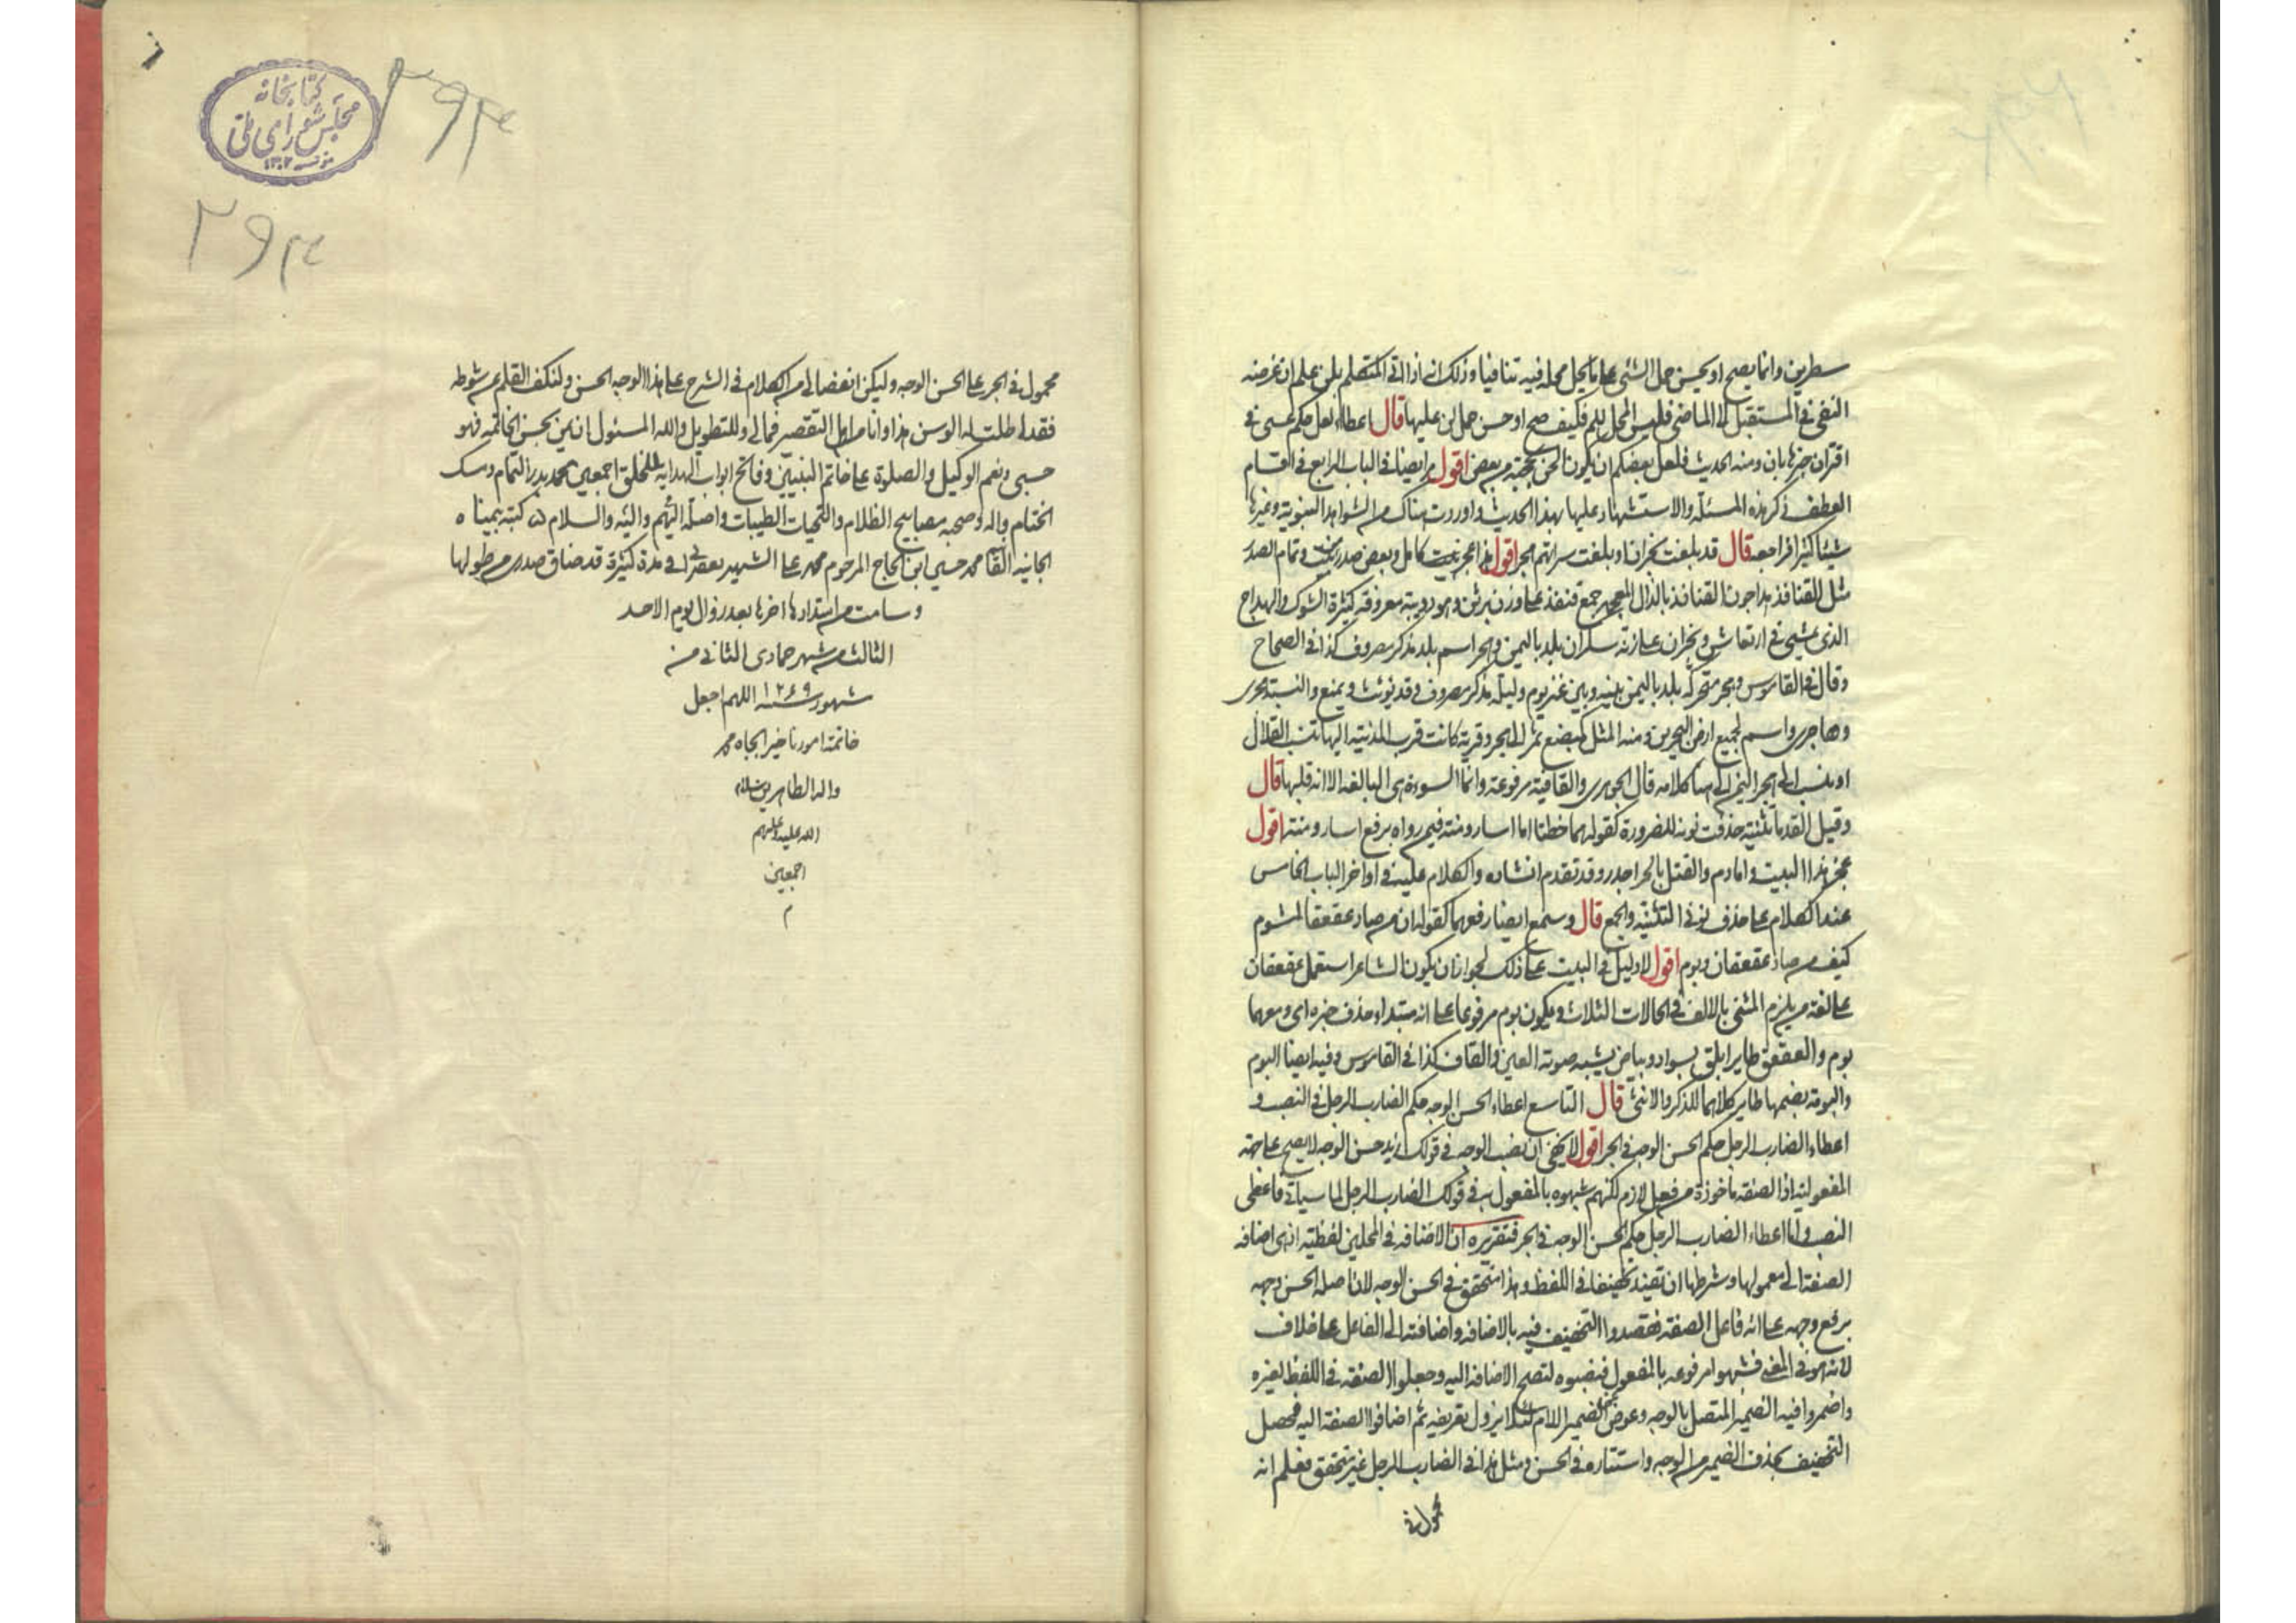 سطرين وانما يصح او يحسن حمل الشئ على ما يحل محله فيه تنافيا وذلك ان اذا اتى المتكلم بلن علم ان غرضه
النفى فى المستقبل لا الماضى فليس المحل للم فكيف صح او حسن حمل لن عليها قال اعطاء لعل حكم عسى فى
اقتران خبرها بان ومنه الحديث فلعل بعضكم ان يكون الحن بحجته من بعض اقول مر ايضا فى الباب الرابع فى اقسام
العطف ذكر هذه المسئلة والاستشهاد عليها بهذا الحديث واوردت هناك من الشواهد النبوية وغيرها
شيئا كثيرا فراجعه قال قد بلغت نجران او بلغت سوآتهم هجر اقول هذا عجز بيت كامل وبعض صدر البيت وتمام الصدر
مثل القنافذ هداجون القنافذ بالذال المعجمه جمع قنفذ على وزن برثن وهو دويبة معروفة كثيرة الشوك والهداج
الذى يمشى فى ارتعاش ونجران على زنة سلران بلد باليمن وهجر اسم بلد مذكر مصروف كذا فى الصحاح
وقال فى القاموس وهجر متحركة بلد باليمن بينه وبين عثر يوم وليلة مذكر مصروف وقد يونث ويمنع والنسبة هجرى
وهاجرى واسم لجميع ارض البحرين ومنه المثل كمبضع تمر الى هجر وقرية كانت قرب المدنية اليها تنسب القلال
او ينسب الى هجر اليمن الى هنا كلامه قال الجوهرى والقافية مرفوعة وانما السوءة هى البالغه الا انه قلبها قال
وقيل القدما تثنية حذفت نونه للضرورة كقوله هما خطتا اما اسار ومنة فيمن رواه برفع اسار ومنة اقول
عجز هذا البيت واما دم والقتل بالحر اجدر وقد تقدم انشاده والكلام عليه فى اواخر الباب الخامس
عند الكلام على حذف نونى التثنية والجمع قال وسمع ايضا رفعهما كقوله ان من صاد عقعقا لمشوم
كيف من صاد عقعقان وبوم اقول لا دليل فى البيت على ذلك لجواز ان يكون الشاعر استعمل عقعقان
على لغة من يلزم المثنى بالالف فى الحالات الثلاث ويكون بوم مرفوعا على انه مبتداء حذف خبره اى ومعهما
بوم والعقعق طاير ابلق بسواد وبياض يشبه صوته العين والقاف كذا فى القاموس وفيه ايضا البوم
والبومة بضمها طاير كلاهما للذكر والانثى قال التاسع اعطاء الحسن الوجه حكم الضارب الرجل فى النصب و
اعطاء الضارب الرجل حكم الحسن الوجه فى الجر اقول لا يخفى ان نصب الوجه فى قولك زيد حسن الوجه لا يصح على جهة
المفعولية اذ الصفة ماخوذة من فعل لازم لكنهم شبهوه بالمفعول به فى قولك الضارب الرجل لما سياتى فاعطى
النصب واما اعطاء الضارب الرجل حكم الحسن الوجه فى الجر فتقريره ان الاضافة فى المحلين لفظية اذ هى اضافة
الصفة الى معمولها وشرطها ان تفيد تخفيفا فى اللفظ وهذا متحقق فى الحسن الوجه لان اصله الحسن وجهه
برفع وجهه على انه فاعل الصفة فقصدوا التخفيف فيه بالاضافه واضافته الى الفاعل على خلاف
لانه هو فى المعنى فشبهوا مرفوعه بالمفعول فنصبوه لتصح الاضافه اليه وجعلوا الصفة فى اللفظ لغيره
واضمروا فيه الضمير المتصل بالوجه وعوض عن الضمير اللام لئلا يزول تعريفه ثم اضافوا الصفة اليه فحصل
التخفيف بحذف الضمير من الوجه واستتاره فى الحسن ومثل هذا فى الضارب الرجل غير متحقق فعلم انه
محمول فى
محمول فى الجر على الحسن الوجه وليكن انفصالى من الكلام فى الشرح على هذا الوجه الحسن ولنكف القلم عن شوطه
فقد اطلت له الوسن هذا وانا من اهل التقصير فمالى وللتطويل والله المسئول ان يمن بحسن الخاتمه فهو
حسبى ونعم الوكيل والصلوة على خاتم النبيين وفاتح ابواب الهدايه للخلق اجمعين محمد بدر التمام ومسك
الختام واله وصحبه مصابيح الظلام والتحيات الطيبات واصلة اليهم واليه والسلام كتبه بيمناه
الجانيه محمد حسين ابن الحاج المرحوم محمد على الشهير فى مدة كثيرة قد ضاق صدرى من طولها
وسامت من امتدادها اخرها بعد زوال يوم الاحد
الثالث من شهر جمادى الثانى من
شهور سنه ١٢٤٩ اللهم اجعل
خاتمة امورنا خيرا بجاه محمد
واله الطاهرين صلوات
الله عليه وعليهم
اجمعين
م
كتابخانه
مجلس شوراى ملى
١٣٠٢